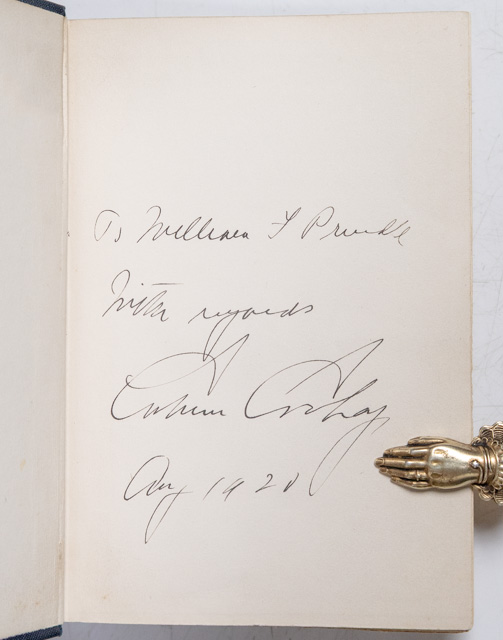 To William F Prindle
With regards
Calvin Coolidge
Aug 1920